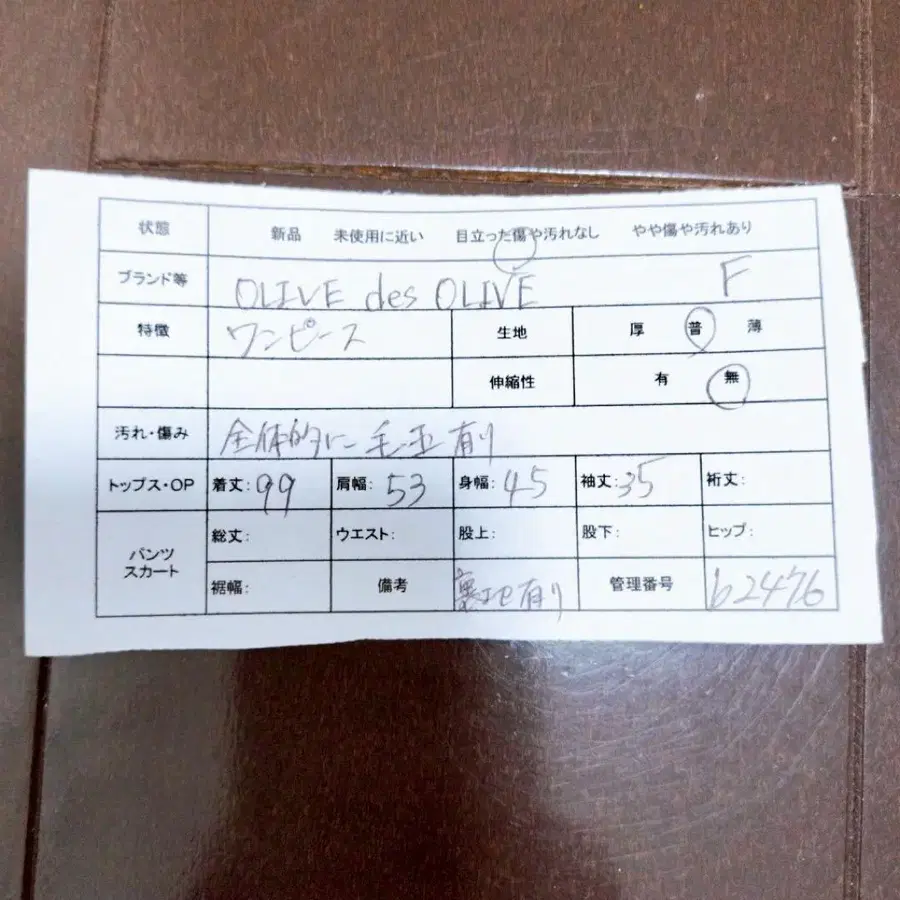 状態 新品 未使用に近い 目立った傷や汚れなし やや傷や汚れあり
ブランド等 OLIVE des OLIVE F
特徴 ワンピース 生地 厚 普 薄
伸縮性 有 無
汚れ・傷み 全体的に毛玉有り
トップス・OP 着丈:99 肩幅:53 身幅:45 袖丈:35 裄丈:
パンツ スカート 総丈: ウエスト: 股上: 股下: ヒップ:
裾幅: 備考 裏地有り 管理番号 b2476